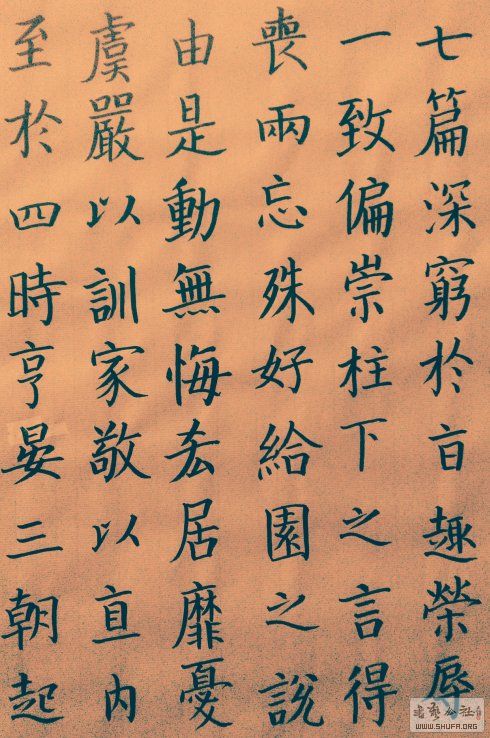 七篇深窮於旨趣榮辱
一致偏崇柱下之言得
喪兩忘殊好給園之說
由是動無悔吝居靡憂
虞嚴以訓家敬以直内
至於四時亨晏三朝起
WWW.SHUFA.ORG